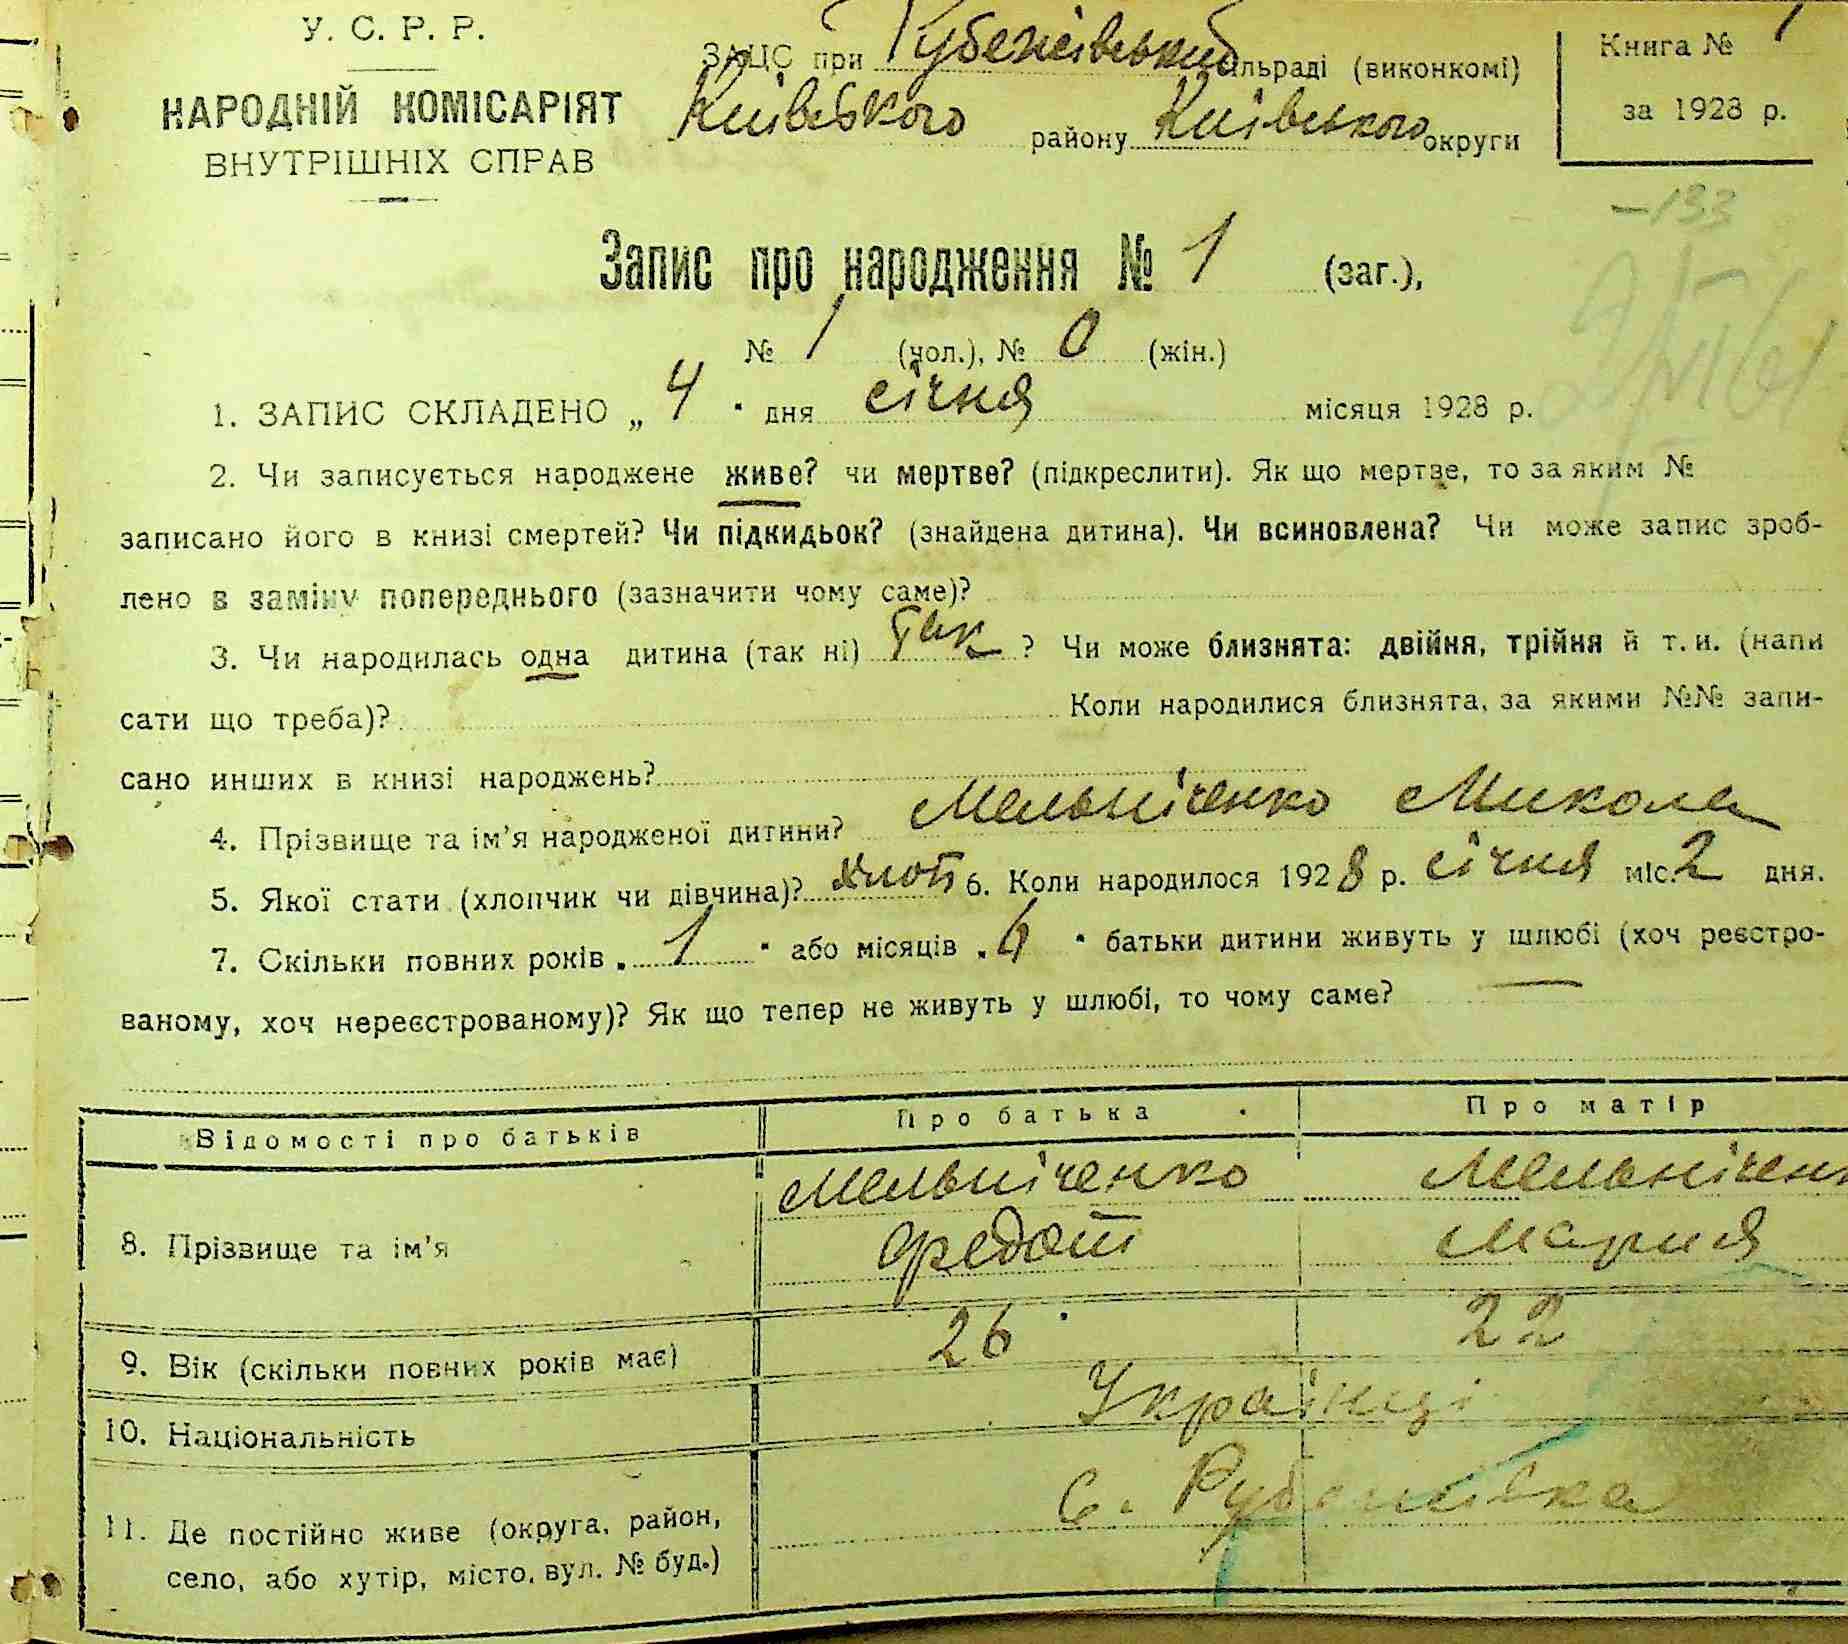 У. С. Р. Р.
НАРОДНІЙ КОМІСАРІЯТ
ВНУТРІШНІХ СПРАВ
ЗАЦС при Рубежівський сільраді (виконкомі)
Київського району Київського округи
Книга № 1
за 1928 р.
-133
Запис про народження № 1 (заг.),
№ 1 (чол.), № 0 (жін.)
1. ЗАПИС СКЛАДЕНО „ 4 " дня січня місяця 1928 р.
2. Чи записується народжене живе? чи мертве? (підкреслити). Як що мертве, то за яким №
записано його в книзі смертей? Чи підкидьок? (знайдена дитина). Чи всиновлена? Чи може запис зроб-
лено в заміну попереднього (зазначити чому саме)?
3. Чи народилась одна дитина (так ні) Так ? Чи може близнята: двійня, трійня й т. и. (напи
сати що треба)? Коли народилися близнята, за якими №№ запи-
сано инших в книзі народжень?
4. Прізвище та ім'я народженої дитини? Мельніченко Микола
5. Якої стати (хлопчик чи дівчина)? хлоп 6. Коли народилося 1928 р. січня міс. 2 дня.
7. Скільки повних років „ 1 " або місяців „ 6 " батьки дитини живуть у шлюбі (хоч реєстро-
ваному, хоч нереєстрованому)? Як що тепер не живуть у шлюбі, то чому саме?
Відомості про батьків Про батька Про матір
Мельніченко Мельничен
8. Прізвище та ім'я Федот Мария
9. Вік (скільки повних років має) 26 22
10. Національність Українці
11. Де постійно живе (округа, район, с. Рубежівка
село, або хутір, місто, вул. № буд.)